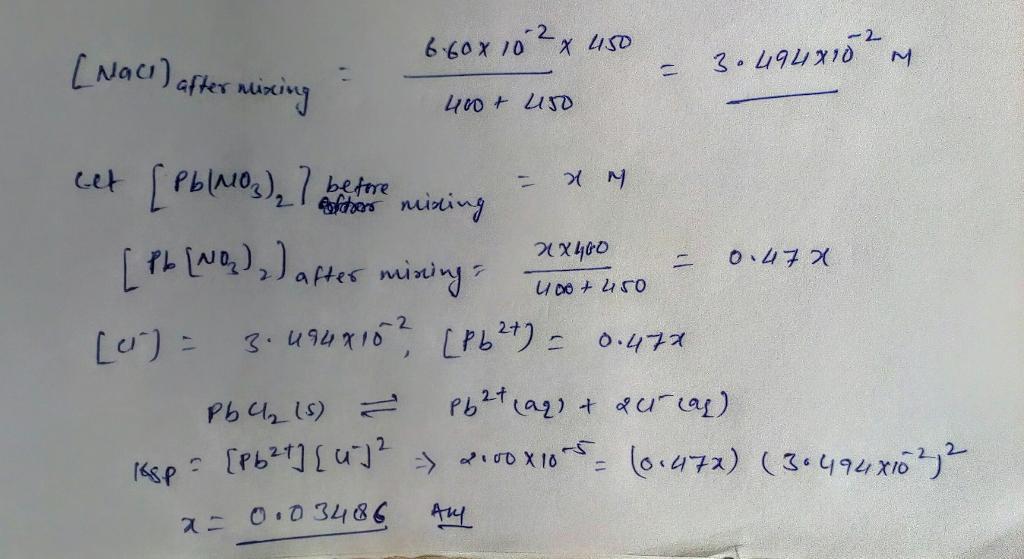 [NaCl] after mixing = 6.60 x 10⁻² x 450 / 400 + 450 = 3.494x10⁻² M
Let [Pb(NO₃)₂] before mixing = x M
[Pb(NO₃)₂] after mixing = x x 400 / 400 + 450 = 0.47 x
[Cl⁻] = 3.494x10⁻², [Pb²⁺] = 0.47x
PbCl₂ (s) ⇌ Pb²⁺ (aq) + 2Cl⁻ (aq)
Ksp = [Pb²⁺] [Cl⁻]² ⇒ 2.00 x 10⁻⁵ = (0.47x) (3.494x10⁻²)²
x = 0.03486 Ans